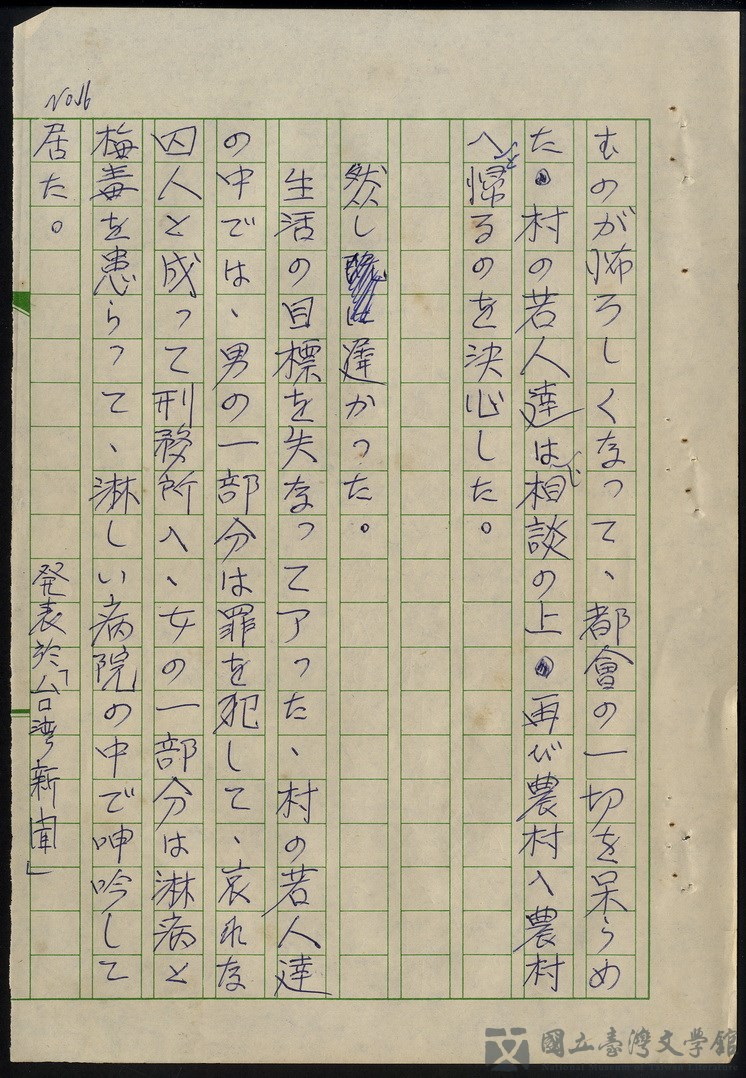 No16
むのが怖ろしくなって、都會の一切を呆らめ
た。村の若人達は相談の上。再び農村へ農村
へ帰るのを決心した。
然し遅かった。
生活の目標を失なってアった、村の若人達
の中では、男の一部分は罪を犯して、哀れな
囚人と成って刑務所へ、女の一部分は淋病と
梅毒を患らって、淋しい病院の中で呻吟して
居た。
発表於「台湾新聞」
國立臺灣文學館
National Museum of Taiwan Literature